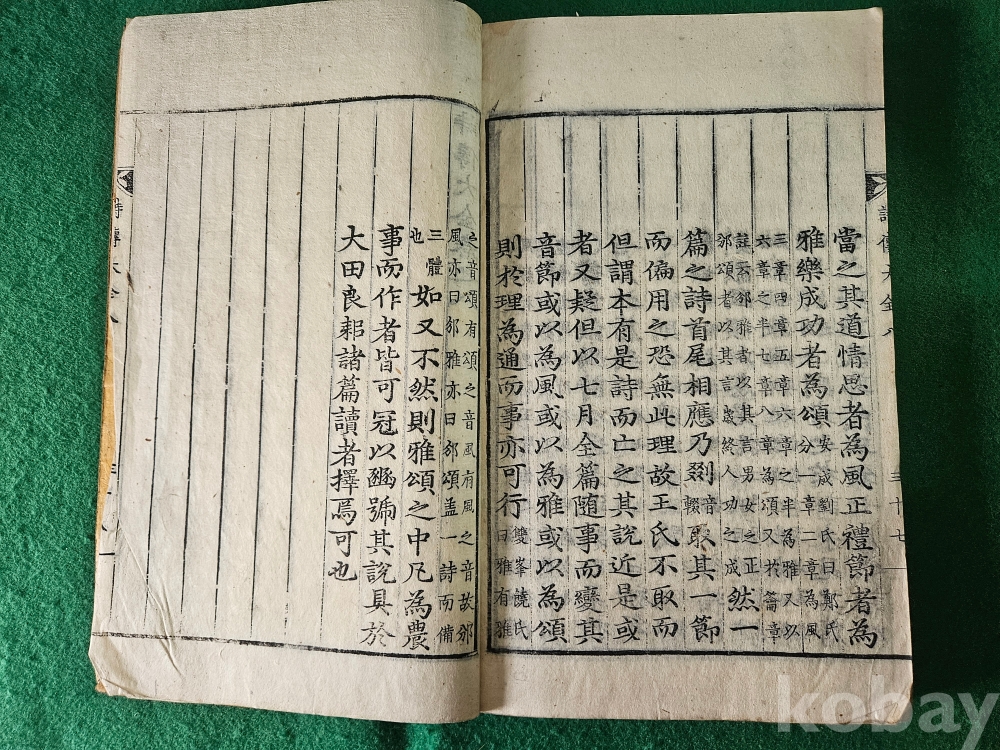 詩傳大全八
三十七
當之其道情思者為風正禮節者為
雅樂成功者為頌安成劉氏曰鄭氏
分一章二章為風
三章四章五章六章之半為雅又以
六章之半七章八章為頌又於籥章
註云邠雅者以其言男女之正
邠頌者以其言歲終人功之成然一
篇之詩首尾相應乃剟音輟取其一節
而偏用之恐無此理故王氏不取而
但謂本有是詩而亡之其說近是或
者又疑但以七月全篇隨事而變其
音節或以為風或以為雅或以為頌
則於理為通而事亦可行雙峯饒氏
曰雅有雅
之音頌有頌之音風有風之音故邠
風亦曰邠雅亦曰邠頌盖一詩而備
三體
也如又不然則雅頌之中凡為農
事而作者皆可冠以豳號其說具於
大田良耜諸篇讀者擇焉可也
詩傳大全八
kobay